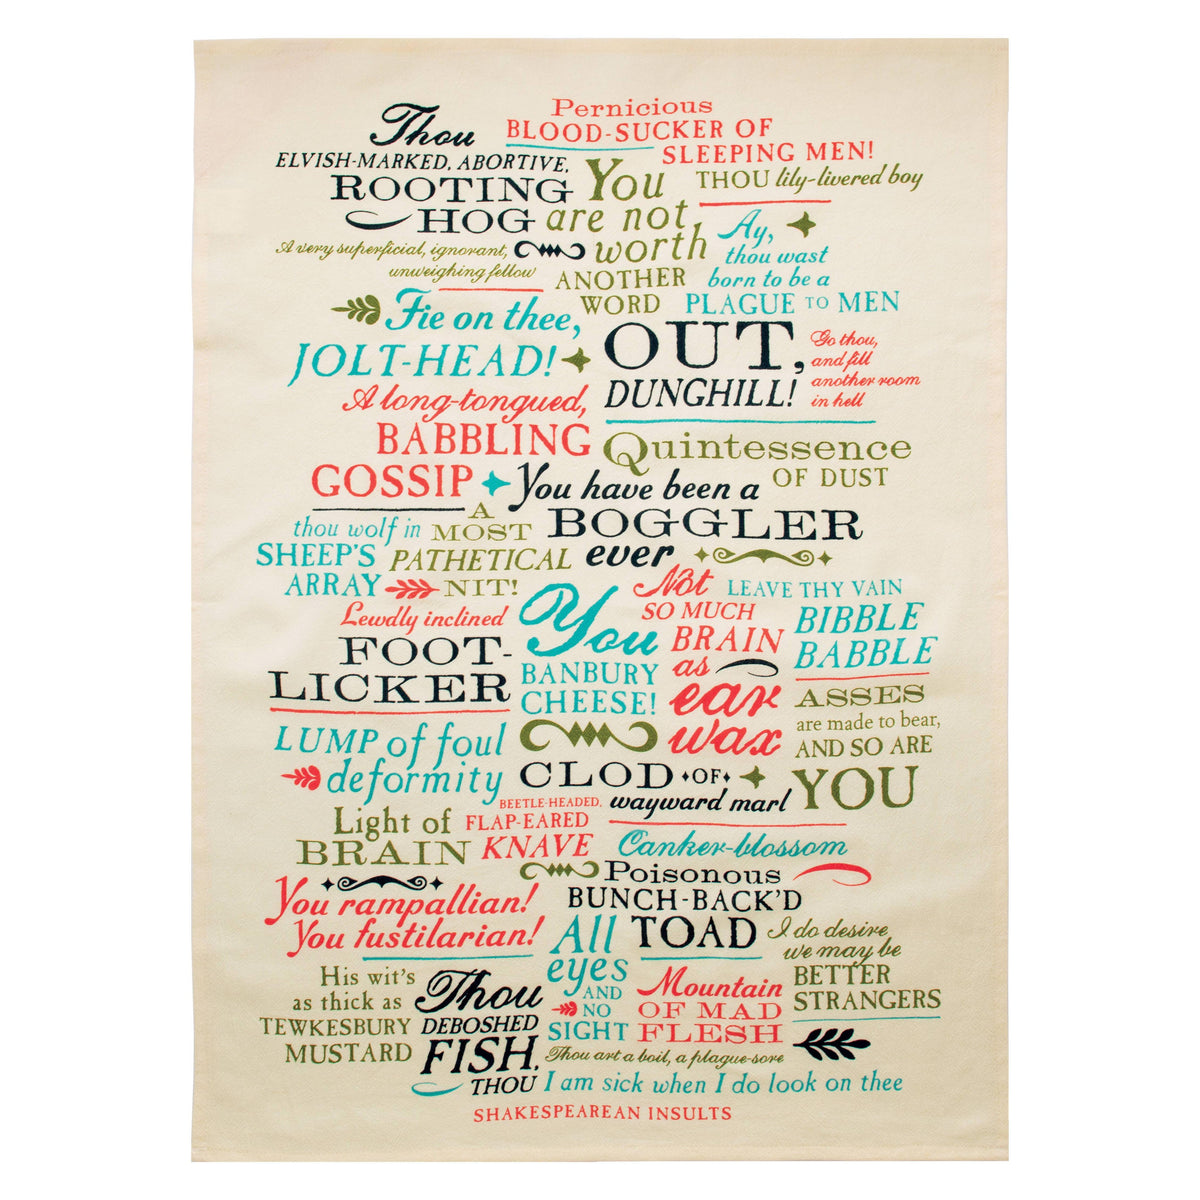 Thou
ELVISH-MARKED, ABORTIVE,
ROOTING
HOG
Pernicious
BLOOD-SUCKER OF
SLEEPING MEN!
You
are not
worth
ANOTHER
WORD
THOU lily-livered boy
A very superficial, ignorant,
unweighing fellow
Ay,
thou wast
born to be a
PLAGUE TO MEN
Fie on thee,
JOLT-HEAD!
OUT,
DUNGHILL!
Go thou,
and fill
another room
in hell
A long-tongued,
BABBLING
GOSSIP
Quintessence
OF DUST
You have been a
BOGGLER
ever
thou wolf in
SHEEP'S
ARRAY
A
MOST
PATHETICAL
NIT!
Not
SO MUCH
BRAIN
as
ear
wax
LEAVE THY VAIN
BIBBLE
BABBLE
Lewdly inclined
FOOT-
LICKER
You
BANBURY
CHEESE!
ASSES
are made to bear,
AND SO ARE
YOU
LUMP of foul
deformity
CLOD OF
wayward marl
Light of
BRAIN
BEETLE-HEADED,
FLAP-EARED
KNAVE
Canker-blossom
Poisonous
BUNCH-BACK'D
TOAD
You rampallian!
You fustilarian!
All
eyes
AND
NO
SIGHT
I do desire
we may be
BETTER
STRANGERS
His wit's
as thick as
TEWKESBURY
MUSTARD
Thou
DEBOSHED
FISH,
THOU
Mountain
OF MAD
FLESH
Thou art a boil, a plague-sore
I am sick when I do look on thee
SHAKESPEAREAN INSULTS